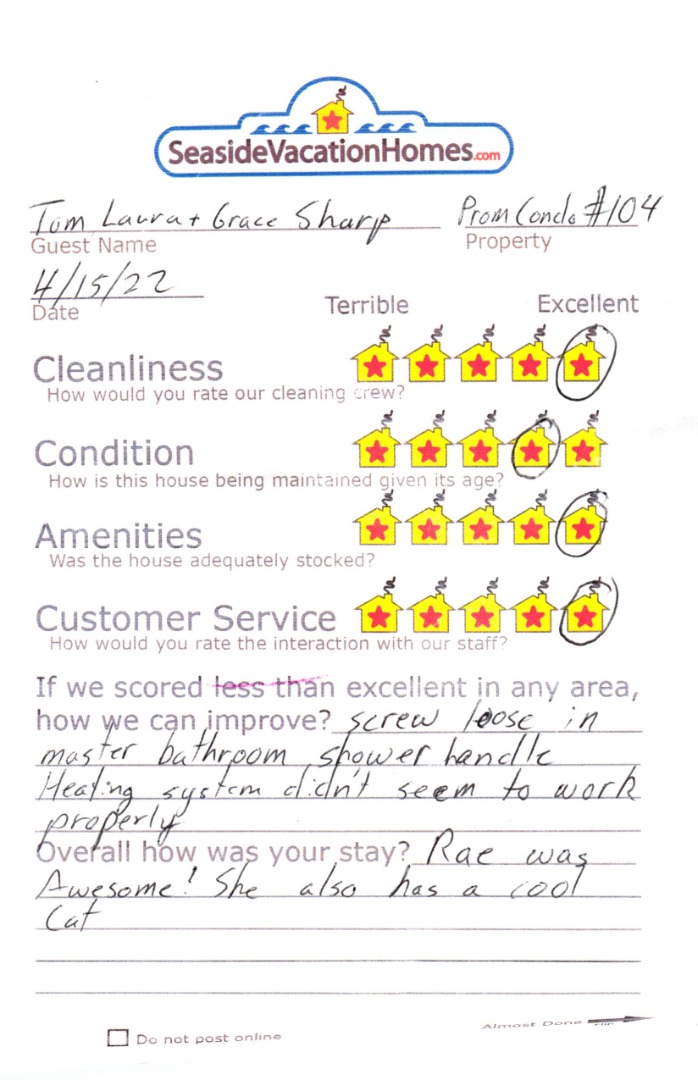 SeasideVacationHomes.com
Tom, Laura + Grace Sharp Prom Condo #104
Guest Name Property
4/15/22
Date Terrible Excellent
Cleanliness
How would you rate our cleaning crew?
Condition
How is this house being maintained given its age?
Amenities
Was the house adequately stocked?
Customer Service
How would you rate the interaction with our staff?
If we scored less than excellent in any area,
how we can improve? screw loose in
master bathroom shower handle
Heating system didn't seem to work
properly
Overall how was your stay? Rae was
Awesome! She also has a cool
Cat
Almost Done
Do not post online